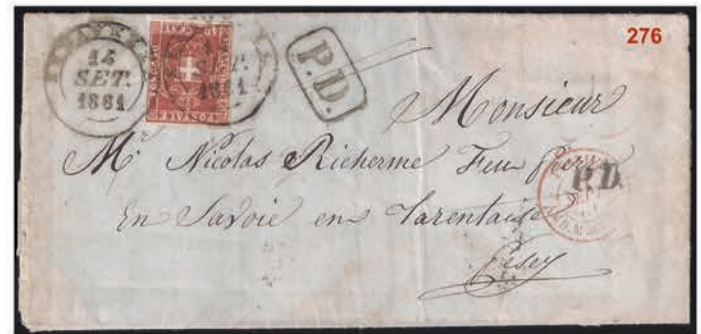 276
14
SET.
1861
SET.
1861
POSTALE
P.D.
Monsieur
Mr Nicolas Richerme Feu
P.D.
En Savoie en Tarentaise
Pesey